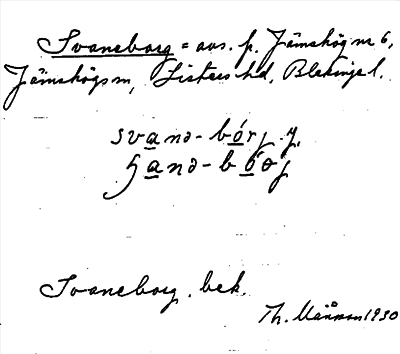 Svaneborg = avs. p. Jämshög nr 6,
Jämshögs sn, Listers hd, Blekinge l.
svanə-bórj y.
hanə-bóəj
Svaneborg. bek.
Th. 1930